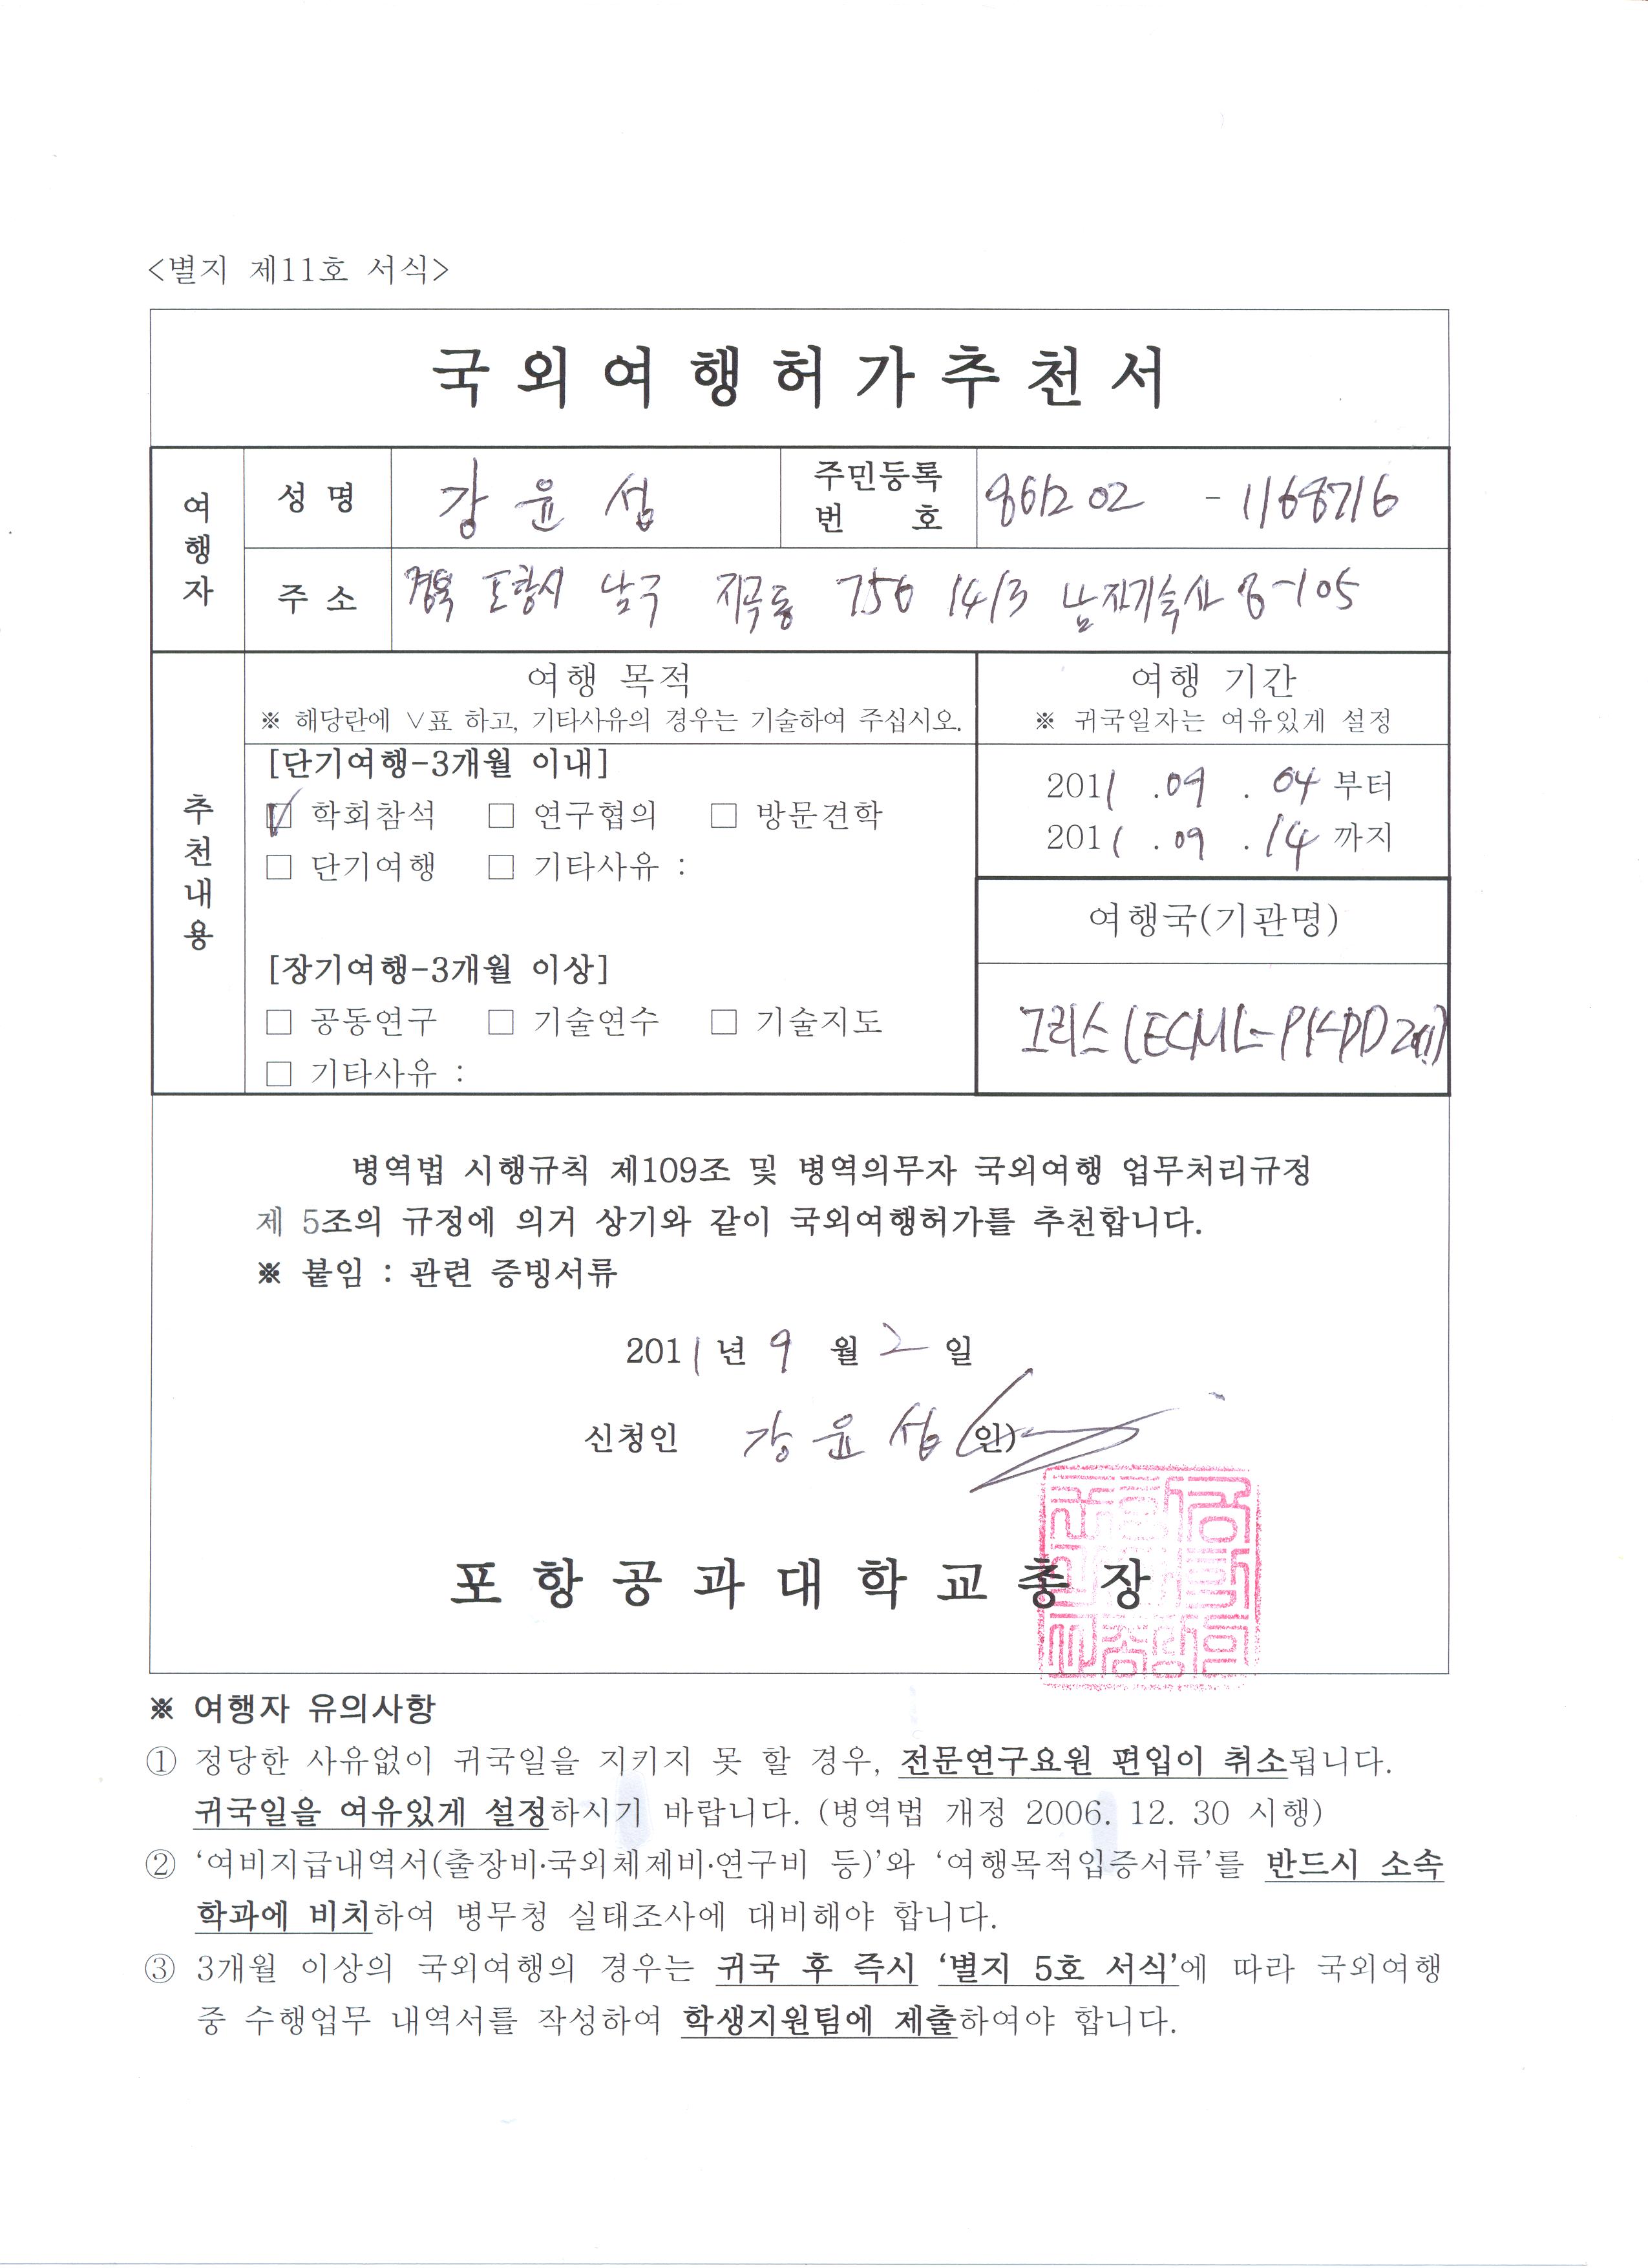 <별지 제11호 서식>
국외여행허가추천서
여행자
성 명
강윤섭
주민등록번호
861202 - 1168716
주 소
경북 포항시 남구 지곡동 756 14/3 남자기숙사 8-105
추천내용
여행 목적
※ 해당란에 ∨표 하고, 기타사유의 경우는 기술하여 주십시오.
여행 기간
※ 귀국일자는 여유있게 설정
[단기여행-3개월 이내]
☑ 학회참석 □ 연구협의 □ 방문견학
□ 단기여행 □ 기타사유 :
2011 .09 . 04 부터
2011 . 09 . 14 까지
여행국(기관명)
[장기여행-3개월 이상]
□ 공동연구 □ 기술연수 □ 기술지도
□ 기타사유 :
그리스 (ECML-PKDD 2011)
병역법 시행규칙 제109조 및 병역의무자 국외여행 업무처리규정
제 5조의 규정에 의거 상기와 같이 국외여행허가를 추천합니다.
※ 붙임 : 관련 증빙서류
2011년 9 월 2 일
신청인 강윤섭 (인)
포항공과대학교총장
※ 여행자 유의사항
① 정당한 사유없이 귀국일을 지키지 못 할 경우, 전문연구요원 편입이 취소됩니다.
귀국일을 여유있게 설정하시기 바랍니다. (병역법 개정 2006. 12. 30 시행)
② ‘여비지급내역서(출장비·국외체제비·연구비 등)’와 ‘여행목적입증서류’를 반드시 소속
학과에 비치하여 병무청 실태조사에 대비해야 합니다.
③ 3개월 이상의 국외여행의 경우는 귀국 후 즉시 ‘별지 5호 서식’에 따라 국외여행
중 수행업무 내역서를 작성하여 학생지원팀에 제출하여야 합니다.